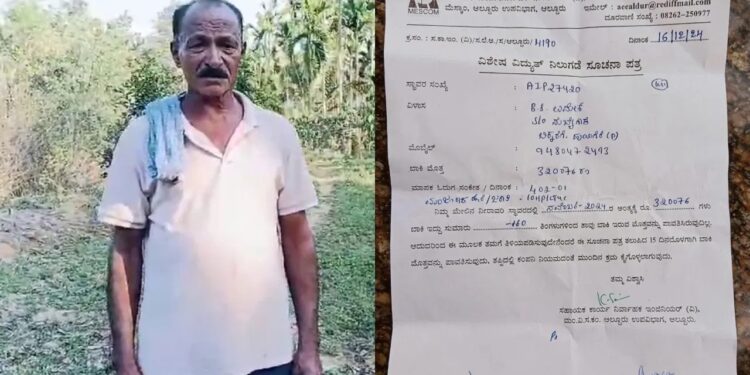 MESCOM
ಮೆಸ್ಕಾಂ, ಆಲ್ದೂರು ಉಪವಿಭಾಗ, ಆಲ್ದೂರು ಇಮೇಲ್ : aeealdur@rediffmail.com
ದೂರವಾಣಿ ಸಂಖ್ಯೆ : 08262-250977
ಕ್ರ.ಸಂ. : ಸ.ಕಾ.ಇಂ. (ವಿ)/ಸ.ಲೆ.ಅ/ಸ/ಆಲ್ದೂರು/ 4190 ದಿನಾಂಕ : 16/12/24
ವಿಶೇಷ ವಿದ್ಯುತ್ ನಿಲುಗಡೆ ಸೂಚನಾ ಪತ್ರ
ಸ್ಥಾವರ ಸಂಖ್ಯೆ : AIP27420
ವಿಳಾಸ : ಬಿ.ಕೆ.
S/o
ಮೊಬೈಲ್ : 9480472493
ಬಾಕಿ ಮೊತ್ತ : 320076
ಮಾಪಕ ಓದುಗ ಸಂಕೇತ / ದಿನಾಂಕ : 402-01
ನಿಮ್ಮ ಮೇಲಿನ ನೀರಾವರಿ ಸ್ಥಾವರದಲ್ಲಿ ನವೆಂಬರ್-2024 ರ ಅಂತ್ಯಕ್ಕೆ ರೂ. 320076 ಗಳು
ಬಾಕಿ ಇದ್ದು ಸುಮಾರು ತಿಂಗಳುಗಳಿಂದ ತಾವು ಬಾಕಿ ಇರುವ ಮೊತ್ತವನ್ನು ಪಾವತಿಸಿರುವುದಿಲ್ಲ.
ಆದುದರಿಂದ ಈ ಮೂಲಕ ತಮಗೆ ತಿಳಿಯಪಡಿಸುವುದೇನೆಂದರೆ ಈ ಸೂಚನಾ ಪತ್ರ ತಲುಪಿದ 15 ದಿನದೊಳಗಾಗಿ ಬಾಕಿ
ಮೊತ್ತವನ್ನು ಪಾವತಿಸುವುದು. ತಪ್ಪಿದಲ್ಲಿ ಕಂಪನಿ ನಿಯಮದಂತೆ ಮುಂದಿನ ಕ್ರಮ ಕೈಗೊಳ್ಳಲಾಗುವುದು.
ತಮ್ಮ ವಿಶ್ವಾಸಿ
ಸಹಾಯಕ ಕಾರ್ಯ ನಿರ್ವಾಹಕ ಇಂಜಿನಿಯರ್ (ವಿ),
ಮಂ.ವಿ.ಸ.ಕಂ. ಆಲ್ದೂರು ಉಪವಿಭಾಗ, ಆಲ್ದೂರು.